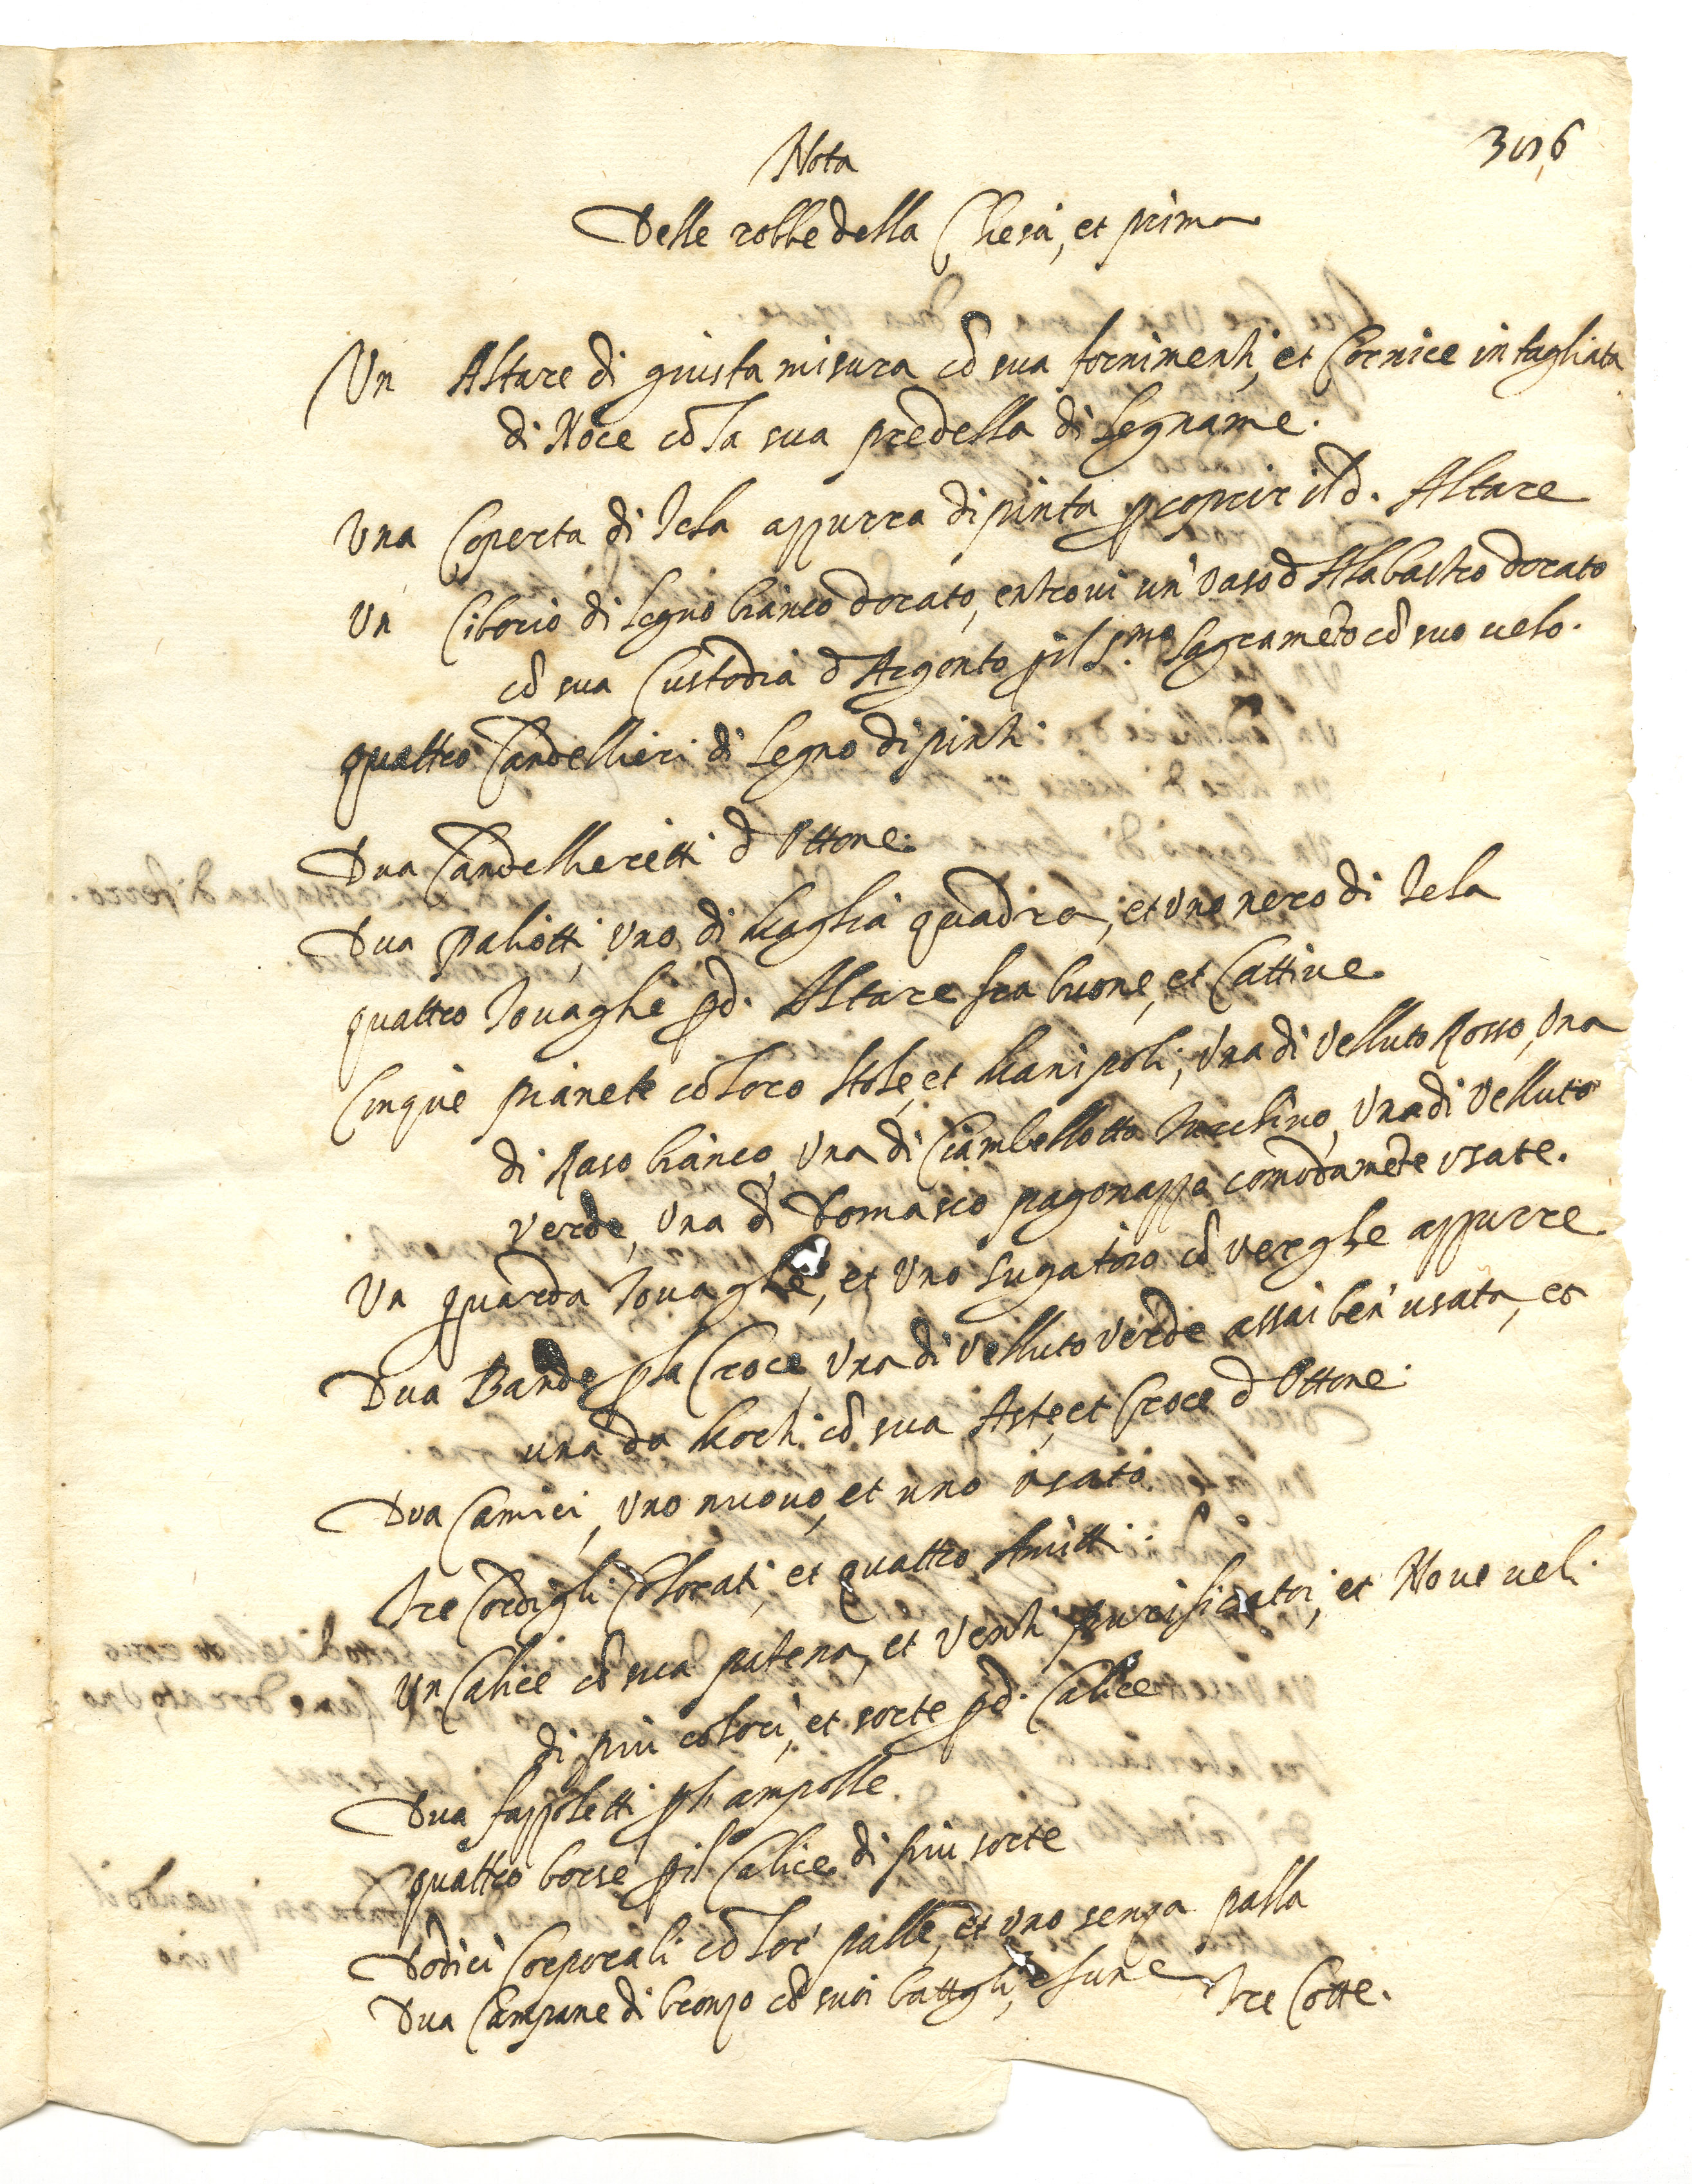 Nota
Delle robbe della Chiesa, et prima
Un Altare di giusta misura cō sua fornimenti, et Cornice intagliata
di Noce cō la sua predella di Legname.
Una Coperta di Tela azzurra dipinta p coprir il d. Altare
Un Ciborio di Legno bianco dorato, entrovi un' vaso d Alabastro dorato
cō sua Custodia d Argento p il S.mo Sagrameto cō suo velo.
quattro Candellieri di Legno dipinti.
Dua Candellieretti d Ottone.
Dua paliotti, uno di Maglia quadra, et uno nero di Tela
quattro Tovaghe p d. Altare fra buone, et Cattive
Cinque pianete cō loro stole, et Manipoli; Una di Velluto Rosso, Una
di Raso bianco, Una di Ciambellotto Turchino, Una di Velluto
verde, Una di Domasco pagonazzo comodamēte usate.
Un guarda Tovaghe, et Uno sugatoro cō verghe azzurre
Dua Bande p la Croce, Una di Velluto verde assai ben' usata, et
una da Morti cō sua Aste, et Croce d Ottone.
Dua Camici, Uno nuovo, et uno usato
Tre Cordigli Colorati, et quattro Amitti.
Un Calice cō sua patena, et Venti purificatoi, et Nove veli
di piu colori, et sorte p d. Calice
Dua fazzoletti p li ampolle.
quattro borse p il Calice di piu sorte
Dodici Corporali cō lor' palle, et uno senza palla
Dua Campane di bronzo cō suoi battagli, e fune Tre Cotte.